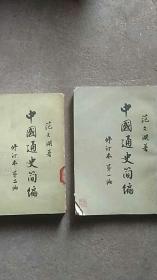 范文澜著
中國通史简编
修订本第二编
范文澜著
中國通史简编
修订本第一编